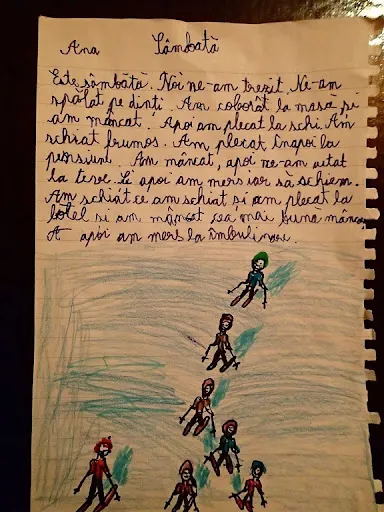 Ana Sâmbătă
Este sâmbătă. Noi ne-am trezit. Ne-am
spălat pe dinți. Am coborât la masa și
am mâncat. Apoi am plecat la schi. Am
schiat frumos. Am plecat înapoi la
pensiune. Am mâncat, apoi ne-am uitat
la teve. Și apoi am mers iar să schiem.
Am schiat ce am schiat și am plecat la
hotel și am mâncat cea mai bună mânca
apoi am mers la îmbulinare.